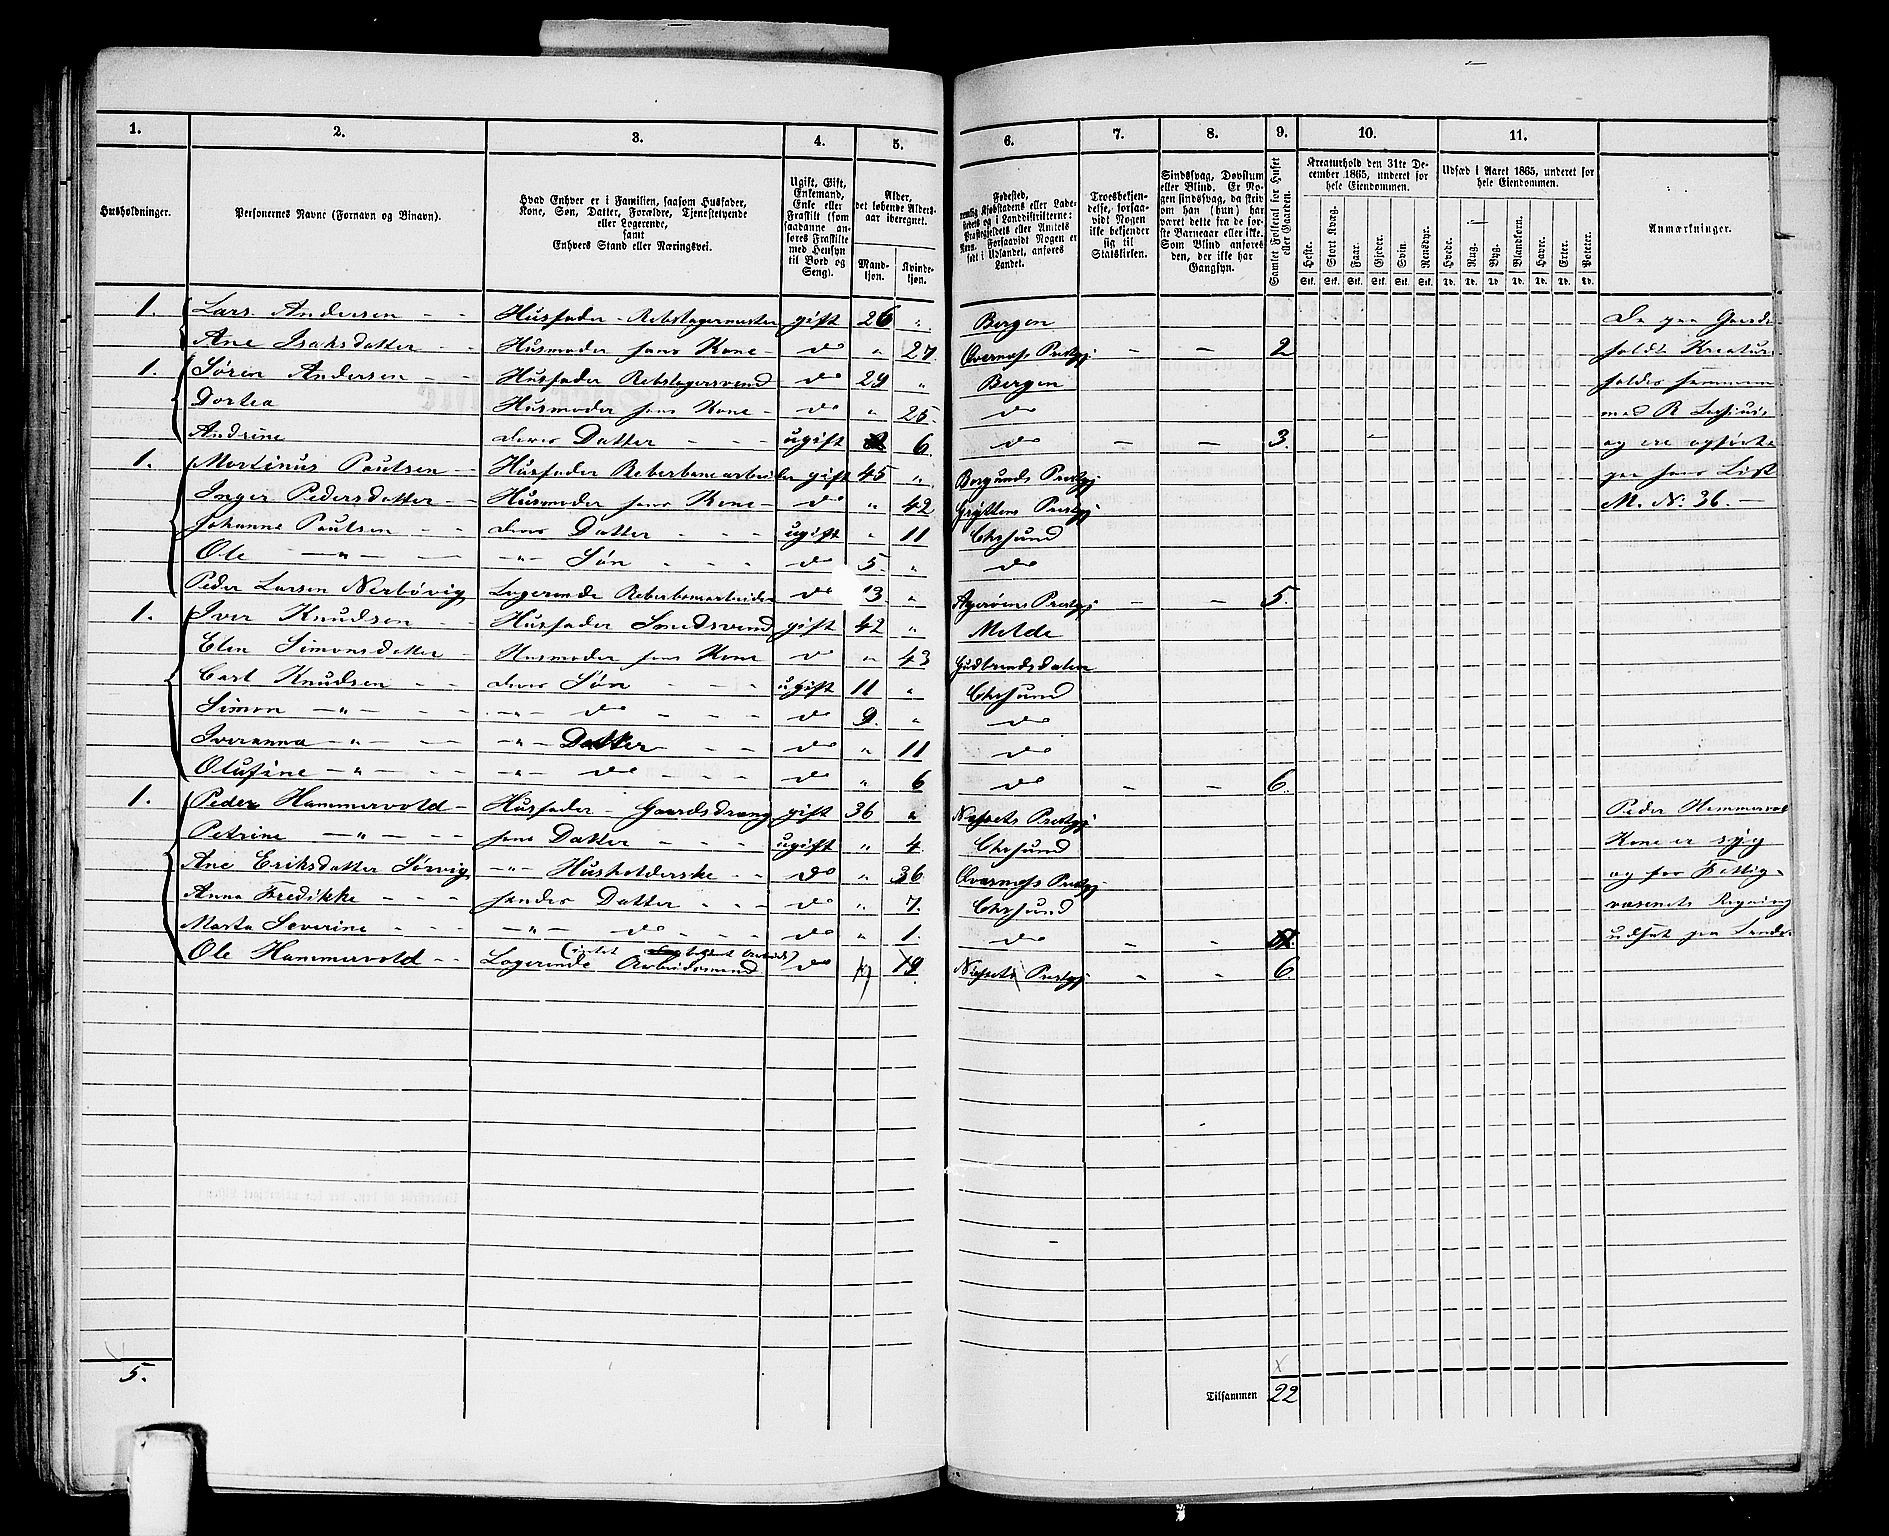 1. 2. 3. 4. 5. 6. 7. 8. 9. 10. 11.
Husholdninger.
Personernes Navne (Fornavn og Binavn).
Hvad Enhver er i Familien, saasom Husfader,
Kone, Søn, Datter, Forældre, Tjenestetyende
eller Logerende,
samt
Enhvers Stand eller Næringsvei.
Ugift, Gift,
Enkemand,
Enke eller
Fraskilt (som
saadanne an-
føres Fraskilte
med Hensyn
til Bord og
Seng).
Alder,
det løbende Alders-
aar iberegnet.
Mand-
kjøn.
Kvinde-
kjøn.
Fødested,
nemlig Kjøbstadens eller Lade-
stedets og i Landdistrikterne:
Præstegjeldets eller Amtets
Navn. Forsaavidt Nogen er
født i Udlandet, anføres
Landet.
Troesbekjen-
delse, forsaa-
vidt Nogen
ikke bekjender
sig til
Statskirken.
Sindssvag, Døvstum
eller Blind. Er No-
gen sindssvag, da skriv
om han (hun) har
været dette fra de før-
ste Barneaar eller ikke.
Som Blind anføres
den, der ikke har
Gangsyn.
Samlet Folketal for Huset
eller Gaarden.
Kreaturhold den 31te De-
cember 1865, underet for
hele Eiendommen.
Heste. Stort Kvæg. Faar. Gjeder. Svin. Rensdyr.
Stk. Stk. Stk. Stk. Stk. Stk.
Udsæd i Aaret 1865, underet for
hele Eiendommen.
Hvede. Rug. Byg. Blandkorn. Havre. Erter. Poteter.
Td. Td. Td. Td. Td. Td. Td.
Anmærkninger.
1. Lars Andersen - - Husfader - Rebslagermester gift 26 " Bergen De paa Gaarde
Ane Isaksdatter - - Husmoder hans Kone - do " 27. Qvernæss Prestgj - - 2 holdte Kreature
1. Søren Andersen - - Husfader Rebslagersvend do 29 " Bergen holdes sammen
Dortea Husmoder hans Kone - do " 25. do med R
Andrine deres Datter - - - ugift 6. do - - 3. og ere opførte
1. Martinus Paulsen - - Husfader Reberbanearbeider gift 45 " Borgunds Prestgj paa hans List
Inger Pedersdatter - - Husmoder hans Kone - do " 42 Gryttens Prestgj M. No. 36. -
Johanne Paulsen - - deres Datter - - - ugift " 11 Chrsund
Ole - " - - " - Søn - - - do 5. " do
Peder Larsen Nerbövig Logerende Reberbanearbeider do 13. " Agerøens Prestgj - - 5.
1. Iver Knudsen - - Husfader Smedsvend gift 42 " Molde
Elen Simonsdatter - - Husmoder hans Kone do " 43 Gudbrandsdalen
Carl Knudsen - - deres Søn - - - ugift 11 " Chrsund
Simon - " - - - - " - do - - - do 9. " do
Iveranna - " - - - - " - Datter - - - do " 11 do
Olufine - " - - - - " - do - - - do " 6 do - - 6.
1. Peder Hammervold - Husfader - Gaardsdreng gift 36 " Næssets Prestgj Peder Hammervol
Petrine - " - - - hans Datter - - - ugift " 4. Chrsund Kone er syg
Ane Eriksdatter Sørvig - " - Husholderske - - do " 36 Qvernæss Prestgj og for Fattig-
Anna Fredikke - - - hendes Datter - - - do " 7. Chrsund væsenets Regning
Marta Severine - - - - " - do - - - do " 1. do - - udsat paa Lande
Ole Hammervold - - Logerende Arbeidsmand do 19. Næssets Prestgj - - 6.
5.
Tilsammen 22